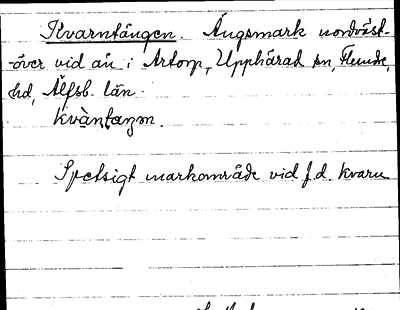 Kvarntången. Ängsmark nordväst-
över vid ån i Artorp, Upphärad sn, Flundre,
hd, Älfsb. län.
kvàntaŋən.
Spetsigt markområde vid f.d. kvarn